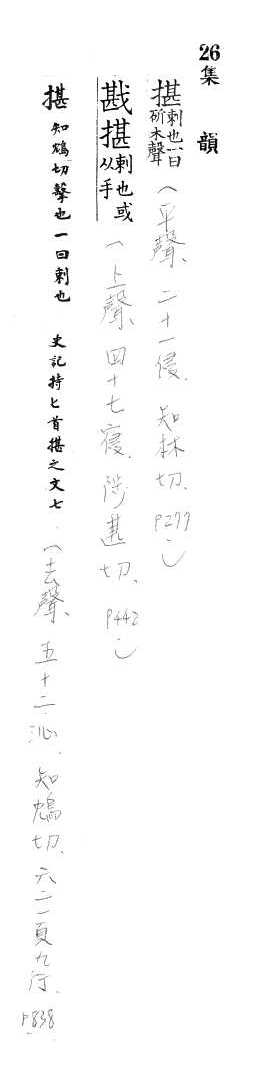 26集韻
揕刺也一曰斫木聲（平聲、二十一侵、知林切、P277）
戡揕刺也或从手（上聲、四十七寑、陟甚切、P442）
揕知鴆切擊也一曰刺也　史記持匕首揕之文七（去聲、五十二沁、知鴆切、六二一頁九行、P838）